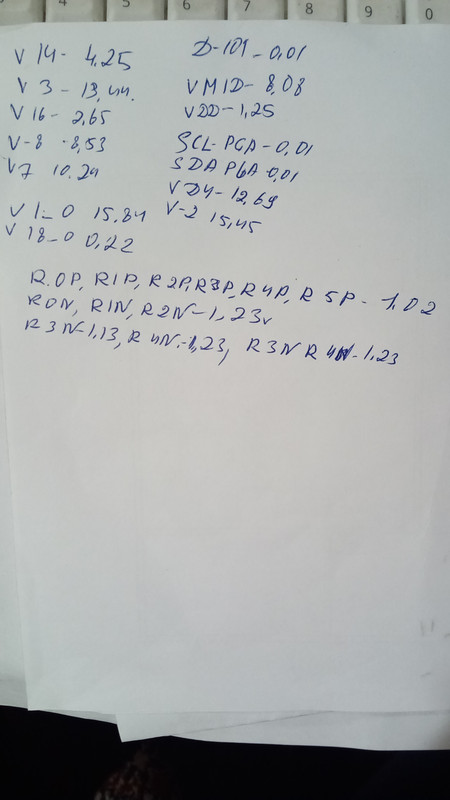 4 5 6 7 8 9 0
V 14 - 4,25
V 3 - 13,44.
V 16 - 2,65
V-8 - 8,53
V7 10.24
V 1-0 15,84
V 18-0 0,22
D-101-0,01
VMID- 8,08
VDD-1,25
SCL-PGA-0,01
SDA PGA 0,01
VD4-12,69
V-2 15,45
R.0P, R1P, R2P, R3P, R4P, R5P-1,02
R0N, R1N, R2N-1,23v
R3N-1,13, R4N-1,23, R3N R4N-1,23